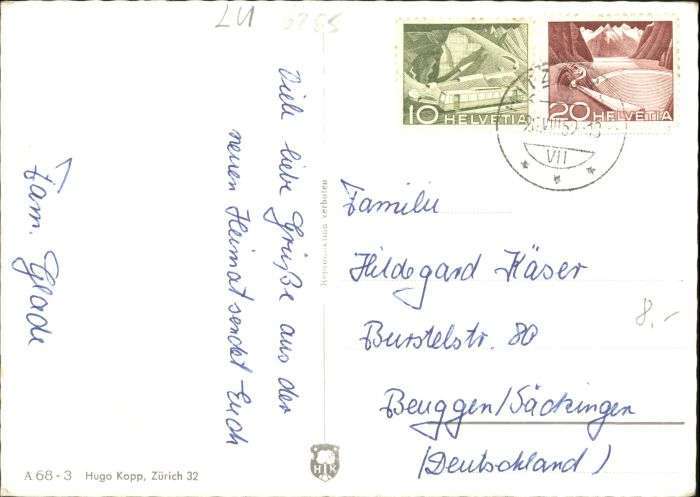 Viele liebe Grüße aus der
neuen Heimat sendet Euch
Fam. Glade
Familie
Hildegard Käser
Burstelstr. 80
Beuggen/Säckingen
(Deutschland)
10 HELVETIA
20 HELVETIA
VII
8.-
LU
Reproduktion verboten
HK
A 68 - 3 Hugo Kopp, Zürich 32